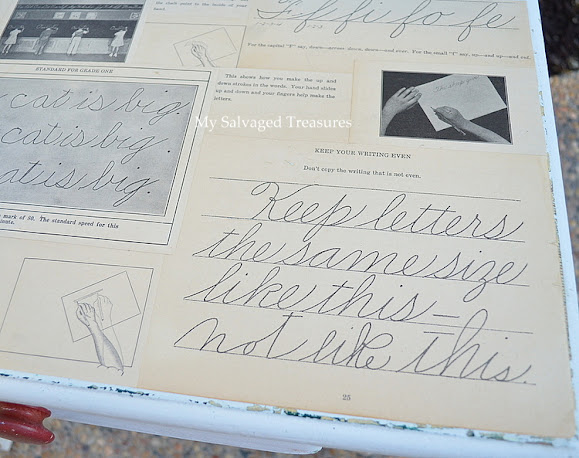 the chart paint in the middle of your
hand.
Ff fi fo fe
For the capital "F" say, down—across down, down—and over. For the small "f" say, up—and up—and out.
STANDARD FOR GRADE ONE
cat is big.
cat is big.
cat is big.
mark of 80. The standard speed for this
This shows how you make the up and
down strokes in the words. Your hand slides
up and down and your fingers help make the
letters.
My Salvaged Treasures
KEEP YOUR WRITING EVEN
Don't copy the writing that is not even.
Keep letters
the same size
like this —
not like this.
25